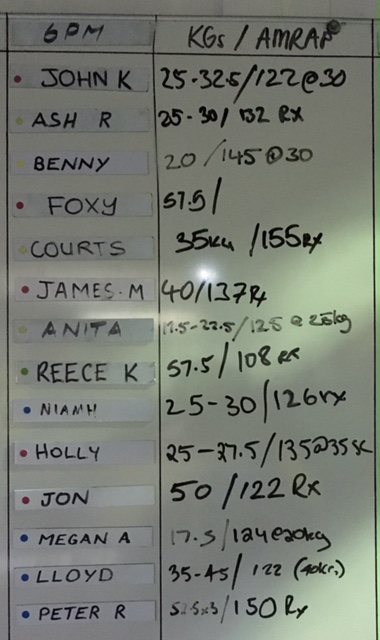 6PM KGs / AMRAP
JOHN K 25-32.5/122@30
ASH R 25-30/132 RX
BENNY 20/145@30
FOXY 57.5/
COURTS 35KG/155Rx
JAMES.M 40/137Rx
ANITA 17.5-22.5/125 @ 25kg
REECE K 57.5/108 RX
NIAMH 25-30/126rx
HOLLY 25-27.5/135@35
JON 50/122 Rx
MEGAN A 17.5/124@20kg
LLOYD 35-45/122
PETER R /150 Rx